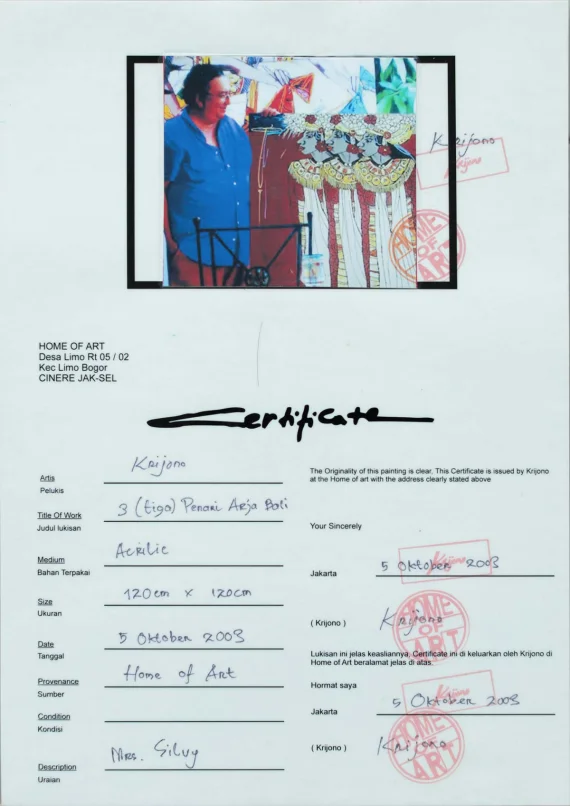 Krijono
Krijono
HOME OF ART
HOME OF ART
Desa Limo Rt 05 / 02
Kec Limo Bogor
CINERE JAK-SEL
Certificate
Artis Krijono
Pelukis
Title Of Work 3 (tiga) Penari Arja Bali
Judul lukisan
Medium Acrilic
Bahan Terpakai
Size 120 cm x 120cm
Ukuran
Date 5 Oktober 2003
Tanggal
Provenance Home of Art
Sumber
Condition
Kondisi
Description Mrs. Silvy
Uraian
The Originality of this painting is clear. This Certificate is issued by Krijono
at the Home of art with the address clearly stated above
Your Sincerely
Krijono
Jakarta 5 Oktober 2003
( Krijono ) Krijono
HOME OF ART
Lukisan ini jelas keasliannya, Certificate ini di keluarkan oleh Krijono di
Home of Art beralamat jelas di atas.
Hormat saya
Krijono
Jakarta 5 Oktober 2003
( Krijono ) Krijono
HOME OF ART